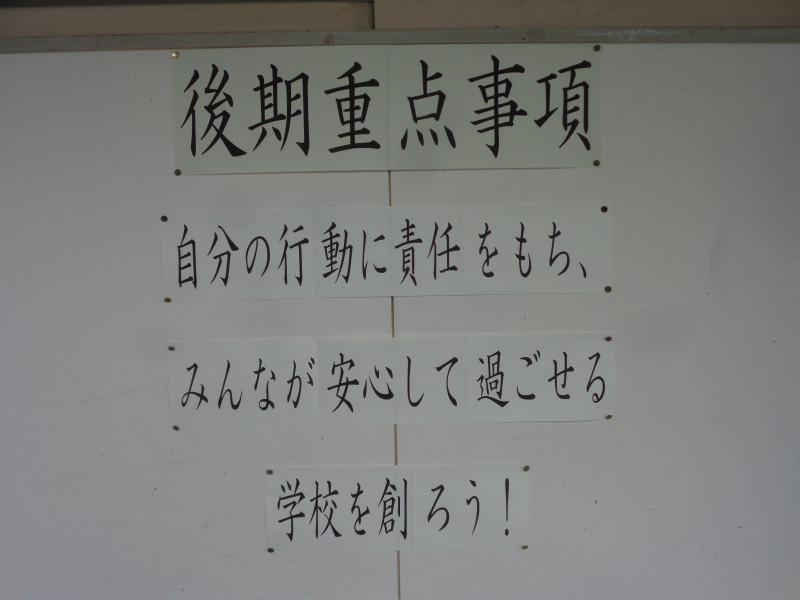 後期重点事項
自分の行動に責任をもち、
みんなが安心して過ごせる
学校を創ろう!